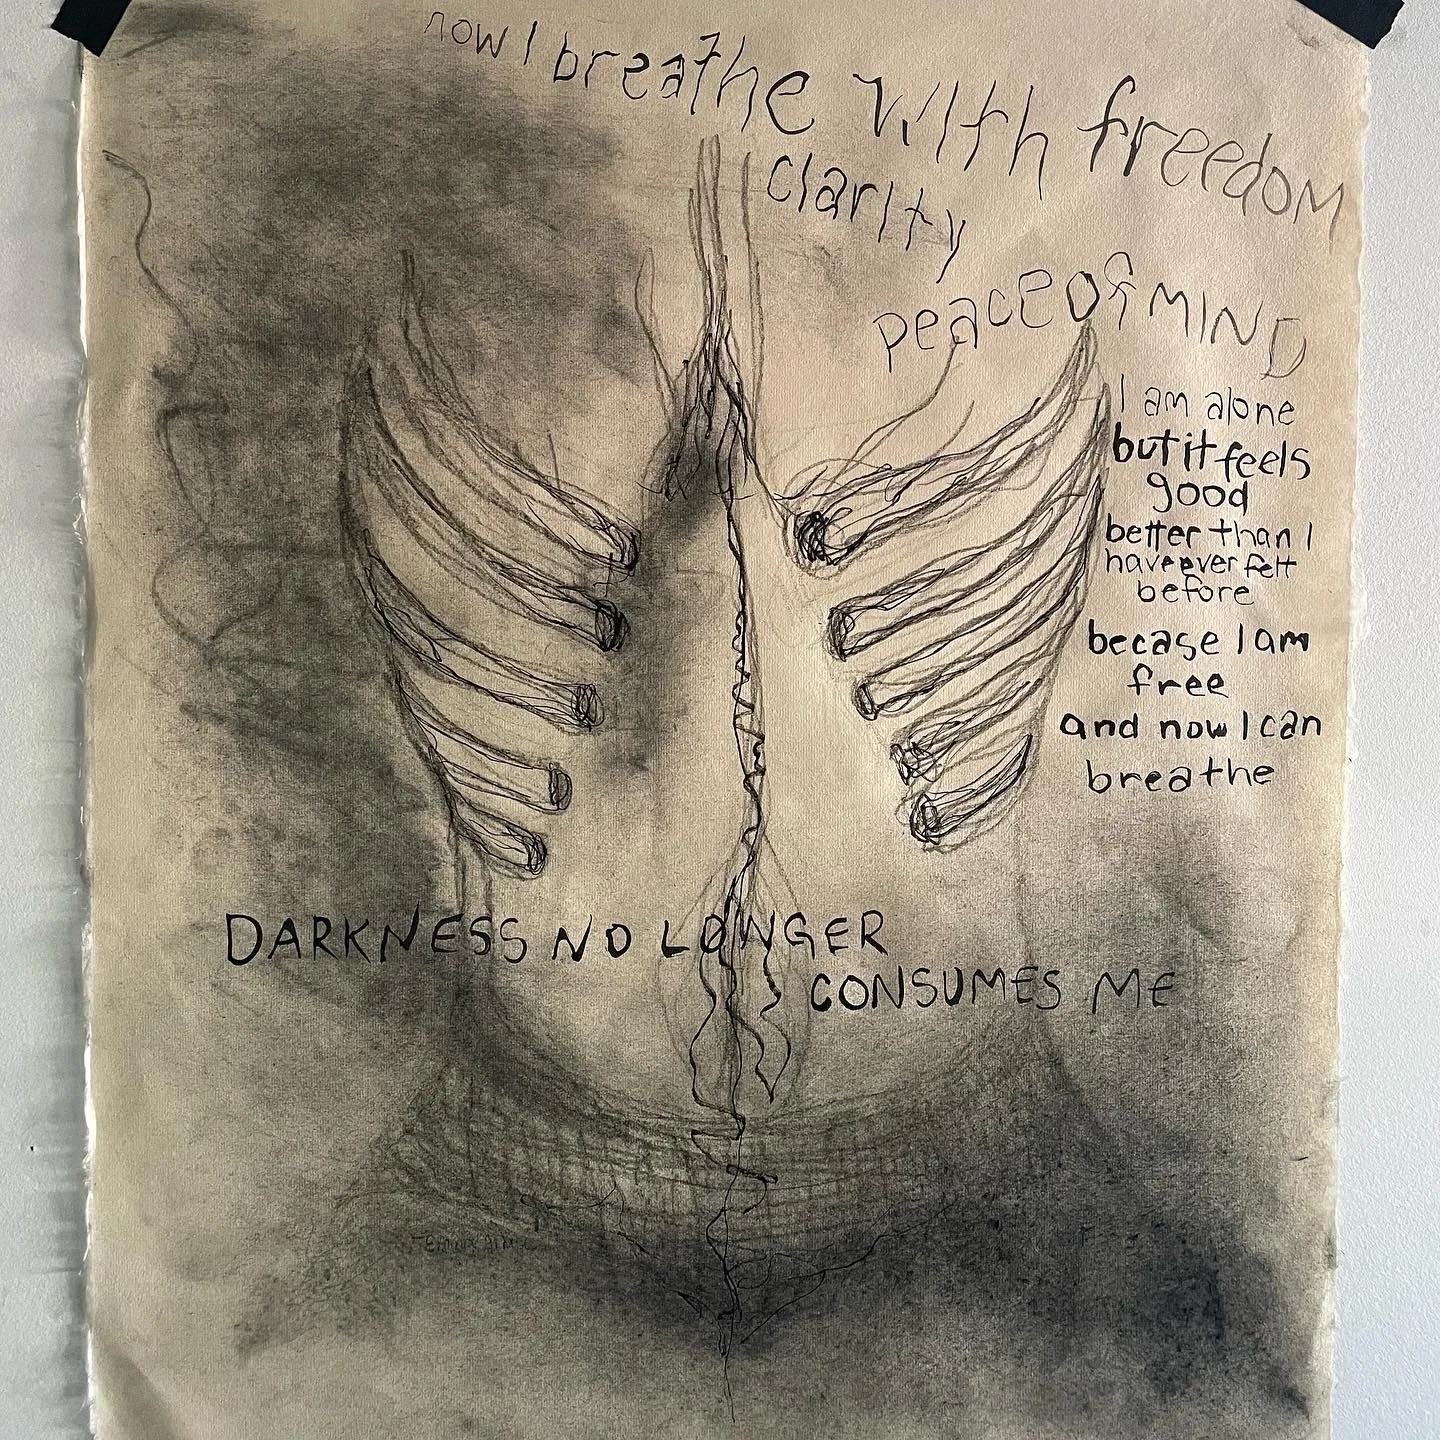 now I breathe with freedom
clarity
peace of MIND
I am alone
but it feels
good
better than I
have ever felt
before
becase I am
free
and now I can
breathe
DARKNESS NO LONGER
CONSUMES ME